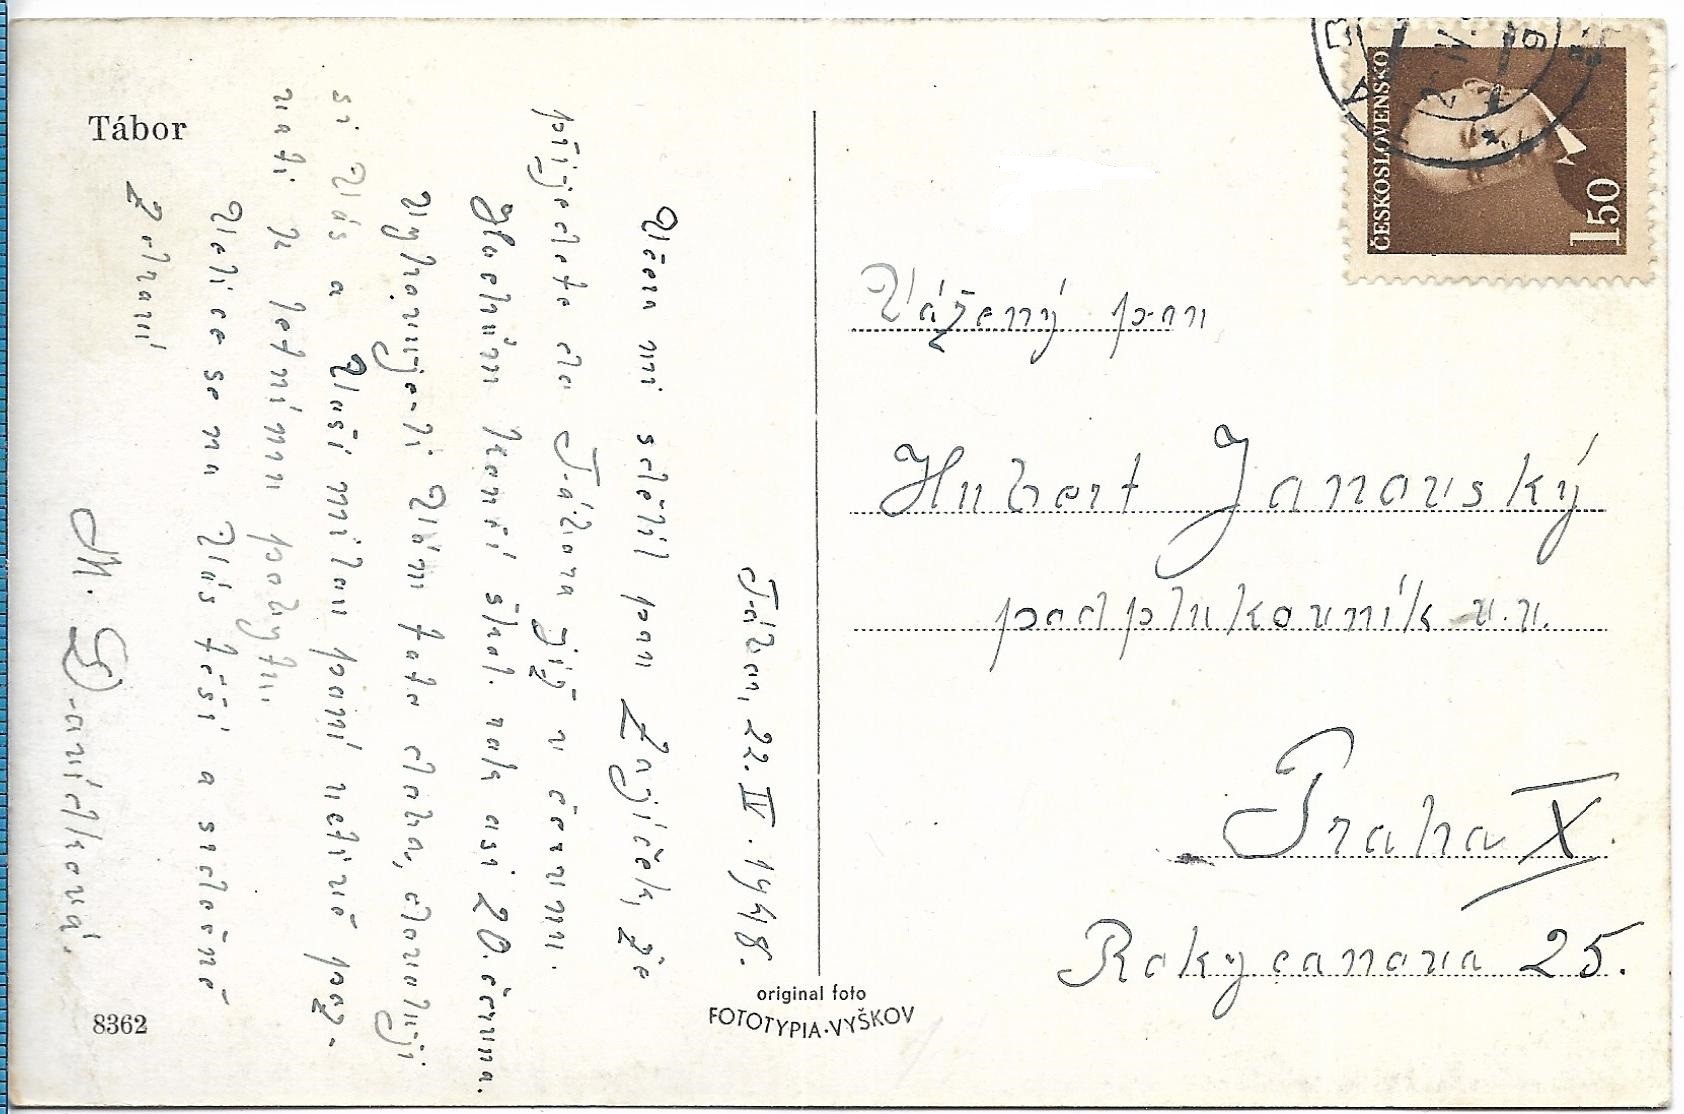 Tábor
Tábor, 22. IV. 1948.
Včera mi sdělil pan Zajíček, že
přijedete do Tábora již v červnu.
Hlavním končí škol. rok asi 20. června.
Vyhovuje-li Vám tato doba, dovoluji
si Vás a Vaši milou paní uctivě poz-
vati k letnímu pobytu.
Velice se na Vás těší a srdečně
zdraví
M. Daníčková.
8362
original foto
FOTOTYPIA-VYŠKOV
ČESKOSLOVENSKO
1.50
Vážený pan
Hubert Janovský
podplukovník v.v.
Praha X.
Rokycanova 25.